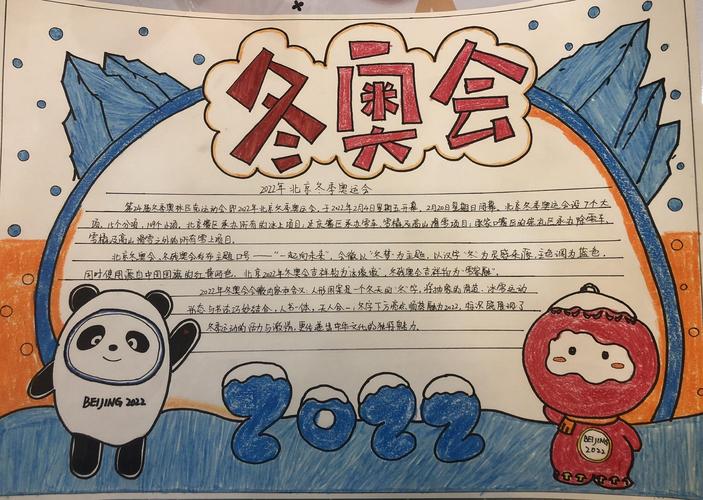 冬奥会
2022年北京冬季奥运会
第24届冬季奥林匹克运动会即2022年北京冬季奥运会,于2022年2月4日星期五开幕,2月20日星期日闭幕,北京冬季奥运会设7个大
项,15个分项,109个小项,北京赛区承办所有的冰上项目,延庆赛区承办雪车、雪橇及高山滑雪项目,张家口赛区的崇礼区承办除雪车、
雪橇及高山滑雪之外的所有雪上项目。
北京冬奥会、冬残奥会发布主题口号——“一起向未来”,会徽以“冬梦”为主题,以汉字“冬”为灵感来源,主色调为蓝色,
同时使用源自中国国旗的红黄两色,北京2022年冬奥会吉祥物为冰墩墩,冬残奥会吉祥物为“雪容融”。
2022年冬奥会会徽内容和含义:人形图案是一个冬天的“冬”字,将抽象的滑道、冰雪运动
形态与书法巧妙结合,人书一体,天人合一,冬字下方
2022,
冬季运动的活力与激情,更传递出中华文化的独特魅力。
BEIJING 2022
2022
BEIJING
2022